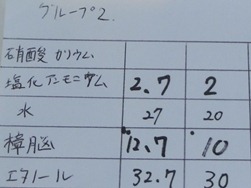 グループ2.
硝酸カリウム
塩化アンモニウム 2.7 2
水 27 20
樟脳 12.7 10
エタノール 32.7 30